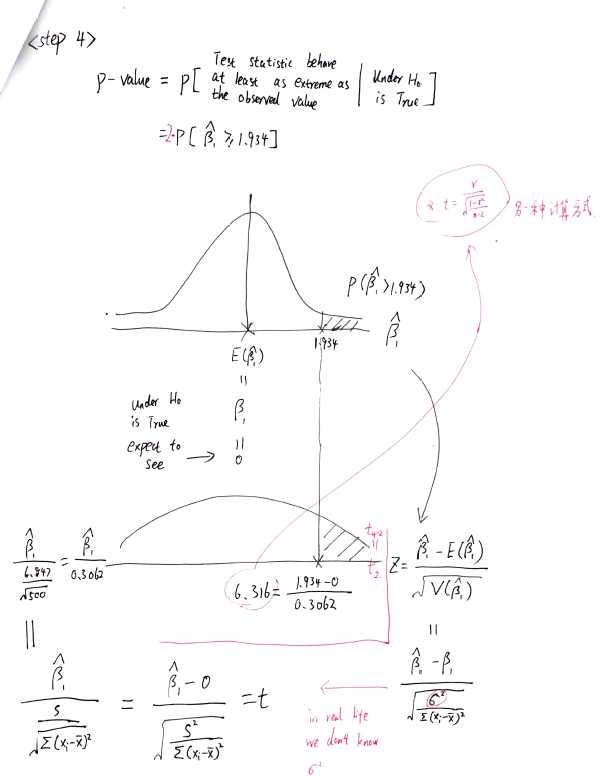 <step 4>
p-value = P[ Test statistic behave at least as extreme as the observed value | Under H₀ is True ]
=2·P[ β̂₁ ≥ 1.934]
※ t = r / √((1-r²)/(n-2))
另一种计算方式
P(β̂₁ > 1.934)
β̂₁
E(β̂₁)
1.934
||
Under H₀ is True
β₁
expect to see → 0
||
0.3062
t₄₋₂
||
t₂
β̂₁ / (6.847/√500) = β̂₁ / 0.3062
6.316 = (1.934-0) / 0.3062
Z = (β̂₁ - E(β̂₁)) / √V(β̂₁)
||
||
β̂₁ / (S/√Σ(xᵢ-x̄)²) = (β̂₁ - 0) / √(S²/Σ(xᵢ-x̄)²) = t
(β̂₁ - β₁) / √(σ²/Σ(xᵢ-x̄)²)
in real life
we don't know
σ²